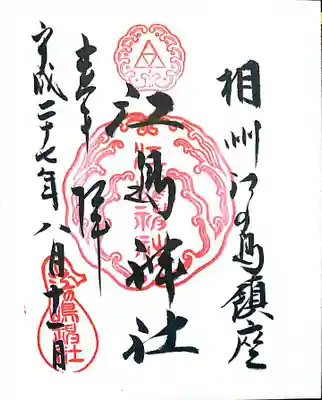 相州江の島鎮座
江島神社
奉拝
平成二十七年八月十一日
江嶋神社